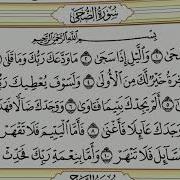 سُورَةُ الضُّحَىٰ
بِسْمِ اللَّهِ الرَّحْمَٰنِ الرَّحِيمِ
حَىٰ ١ وَاللَّيْلِ إِذَا سَجَىٰ ٢ مَا وَدَّعَكَ رَبُّكَ وَمَا قَلَىٰ
خَيْرٌ لَّكَ مِنَ الْأُولَىٰ ٤ وَلَسَوْفَ يُعْطِيكَ رَبُّكَ
أَلَمْ يَجِدْكَ يَتِيمًا فَآوَىٰ ٦ وَوَجَدَكَ ضَالًّا فَهَدَ
وَوَجَدَكَ عَائِلًا فَأَغْنَىٰ ٨ فَأَمَّا الْيَتِيمَ فَلَا تَقْهَرْ
السَّائِلَ فَلَا تَنْهَرْ ١٠ وَأَمَّا بِنِعْمَةِ رَبِّكَ فَحَدِّثْ